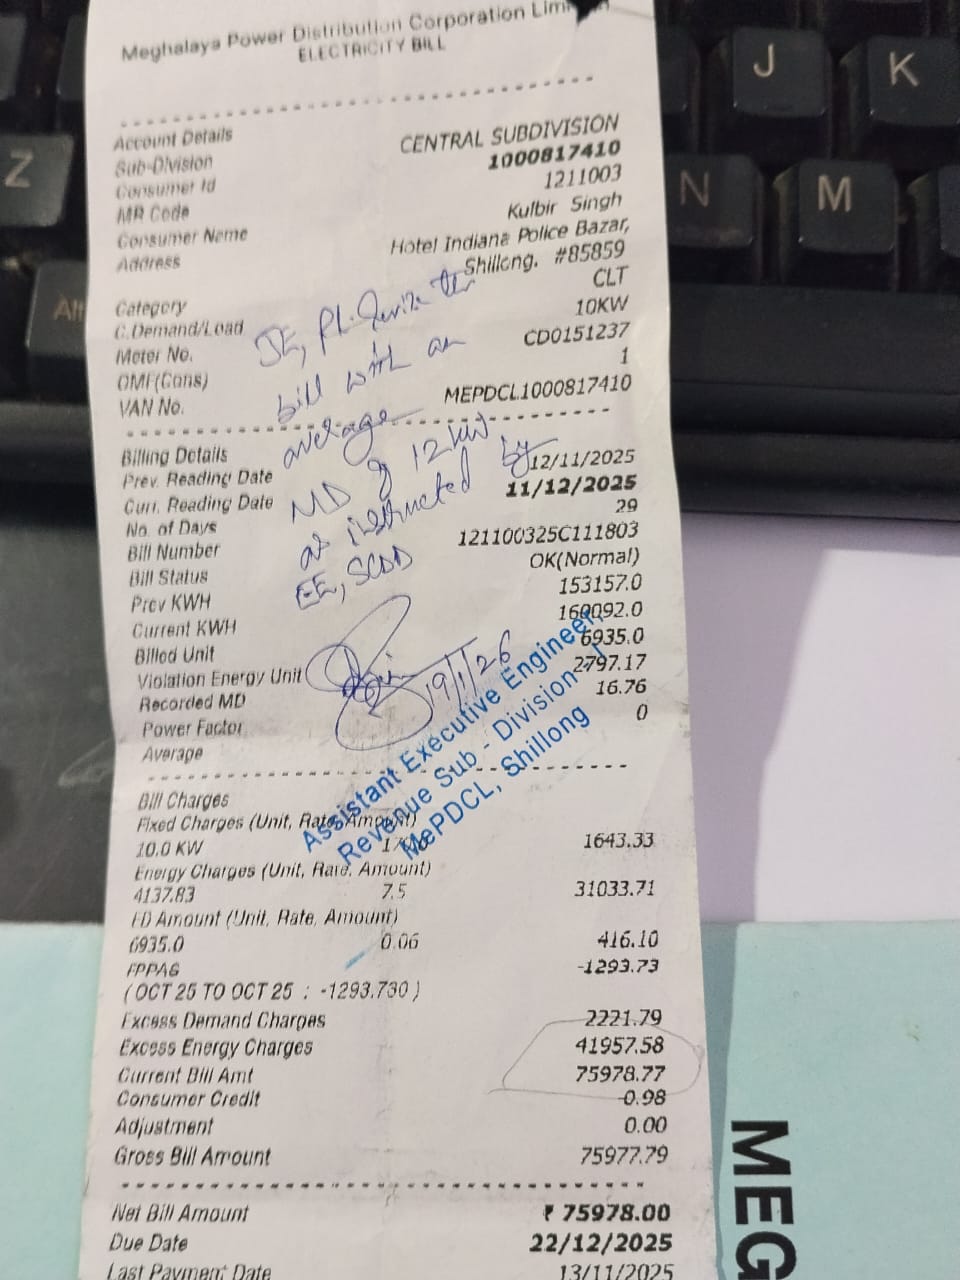 Meghalaya Power Distribution Corporation Lim
ELECTRICITY BILL
Account Details
Sub-Division CENTRAL SUBDIVISION
Consumer Id 1000817410
MR Code 1211003
Consumer Name Kulbir Singh
Address Hotel Indiana Police Bazar,
Shillong. #85859
Category CLT
C.Demand/Load 10KW
Meter No. CD0151237
OMF(Cons) 1
VAN No. MEPDCL1000817410
JE, Pl. the
bill with an
average
MD of 12 kW
as instructed by
EE, SCDD
19/1/26
Billing Details
Prev. Reading Date 12/11/2025
Curr. Reading Date 11/12/2025
No. of Days 29
Bill Number 121100325C111803
Bill Status OK(Normal)
Prev KWH 153157.0
Current KWH 160092.0
Billed Unit 6935.0
Violation Energy Unit 2797.17
Recorded MD 16.76
Power Factor 0
Average
Assistant Executive Engineer
Revenue Sub - Division - I
MePDCL, Shillong
Bill Charges
Fixed Charges (Unit, Rate, Amount)
10.0 KW 1643.33
Energy Charges (Unit, Rate, Amount)
4137.83 7.5 31033.71
ED Amount (Unit, Rate, Amount)
6935.0 0.06 416.10
FPPAS -1293.73
( OCT 25 TO OCT 25 : -1293.730 )
Excess Demand Charges 2221.79
Excess Energy Charges 41957.58
Current Bill Amt 75978.77
Consumer Credit -0.98
Adjustment 0.00
Gross Bill Amount 75977.79
Net Bill Amount ₹ 75978.00
Due Date 22/12/2025
Last Payment Date 13/11/2025
MEG
Z
Alt
J
K
N
M